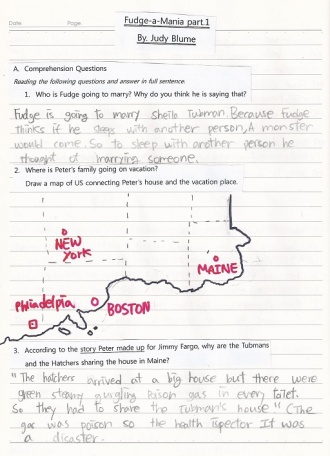 Date Page
Fudge-a-Mania part.1
By. Judy Blume
A. Comprehension Questions
Reading the following questions and answer in full sentence.
1. Who is Fudge going to marry? Why do you think he is saying that?
Fudge is going to marry sheila Tubman. Because Fudge
thinks if he sleeps with another person, A monster
would come. So to sleep with another person he
thought of marrying someone.
2. Where is Peter's family going on vacation?
Draw a map of US connecting Peter's house and the vacation place.
NEW
York
MAINE
Philadelpia
BOSTON
3. According to the story Peter made up for Jimmy Fargo, why are the Tubmans
and the Hatchers sharing the house in Maine?
"The hatchers arrived at a big house but there were
green steamy gurgling Poison gas in every toilet.
So they had to share the Tubman's house" (The
gas was poison so the health ispector It was
a dicaster.